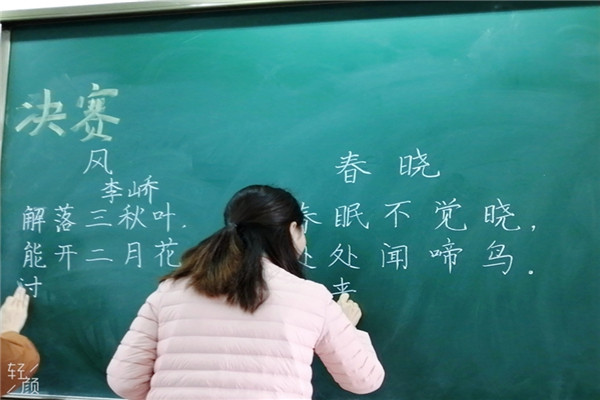 决赛
风
李峤
解落三秋叶,
能开二月花
过
春晓
春眠不觉晓,
处处闻啼鸟.
来
轻颜